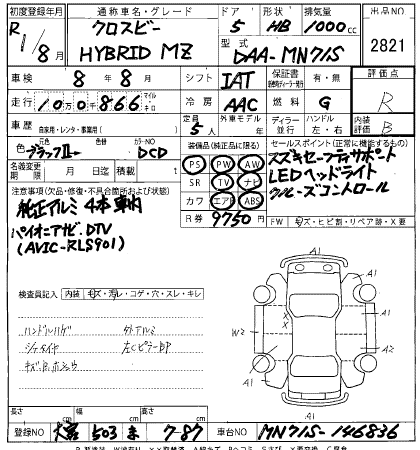 初度登録年月 通称車名・グレード ドア 形状 排気量 出品NO
R1/8月 クロスビー HYBRID MZ 5 HB 1000cc 2821
型式 DAA-MN71S
車検 8年8月 シフト IAT 保証書 有・無 評価点 R
走行 10万0千866 マイル キロ 冷房 AAC 燃料 G 内装評価 B
車歴 自家用・レンタ・事業用( ) 定員 5人 外車モデル 年 ディーラー 並行 ハンドル 左・右
色 ブラックⅡ→ 元色 色替 カラーNO DCD
装備品(純正品に限る) セールスポイント(正常に機能する)
名義変更期限 月 日 積載 t
PS PW AW スズキセーフティサポート
SR TV ナビ LEDヘッドライト
カワ エアB ABS クルーズコントロール
R券 9750円 FW キズ・ヒビ割・リペア跡・X要
注意事項(欠品・修復・不具合箇所および状態)
純正アルミ4本車内
パイオニアナビ、DTV
(AVIC-RLS901)
検査員記入 内装 キズ・汚レ・コゲ・穴・スレ・キレ
ハンドルハゲ 外アルミ
左CピラーBP
A1
A1
W2
X
X
A1
A2
A1
長さ cm 幅 cm 高さ cm
登録NO 503 ま 7-87 車台NO MN71S-146836